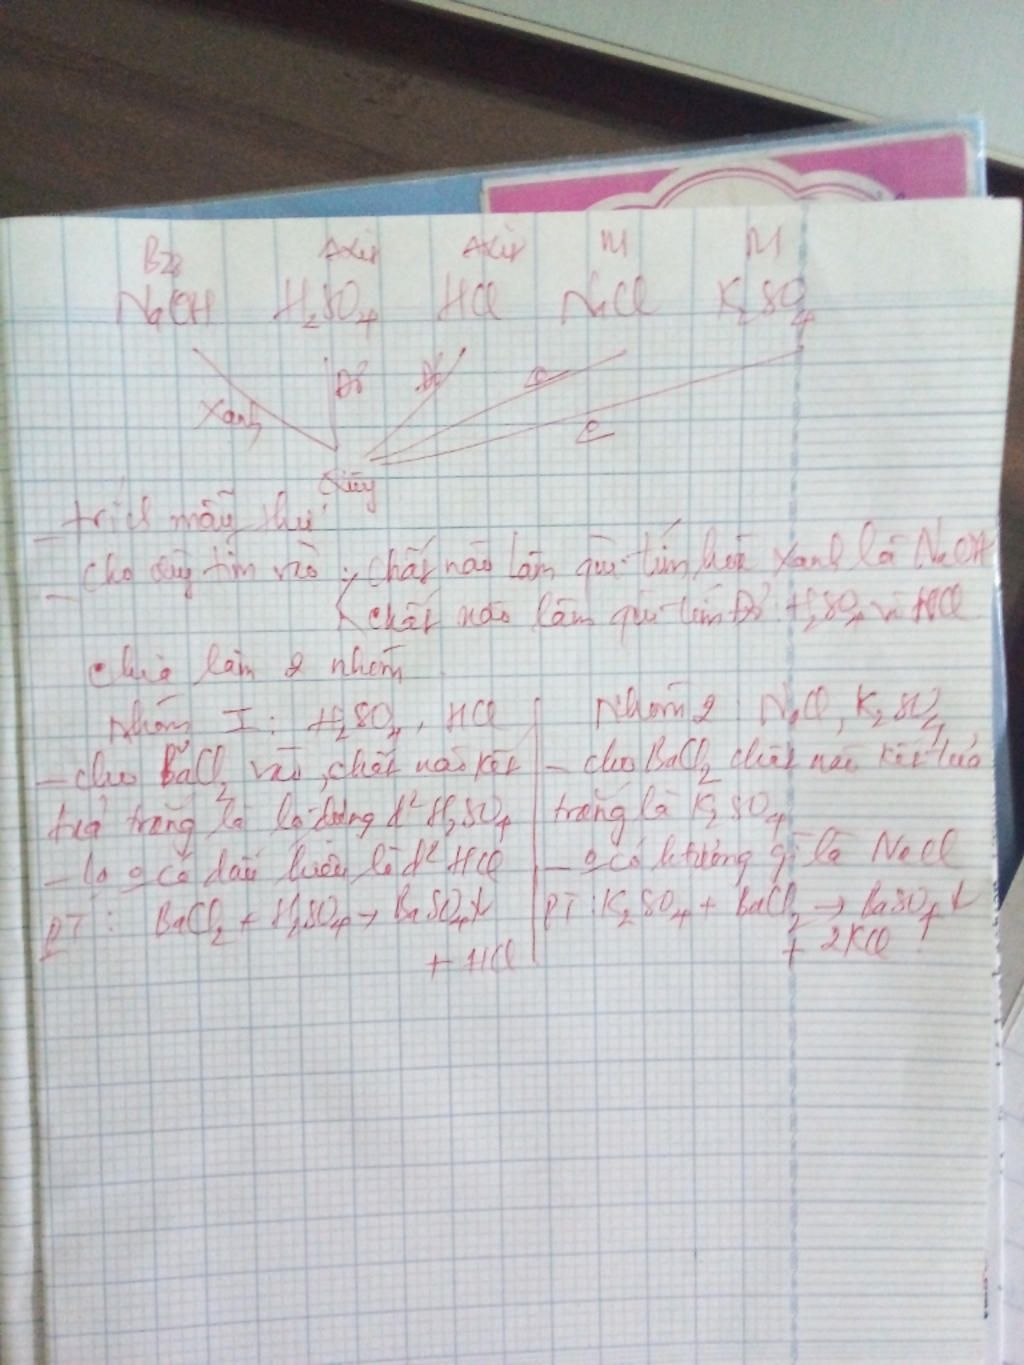 Bazơ Axit Axit M M
NaOH H₂SO₄ HCl NaCl K₂SO₄
Xanh Đỏ Đỏ
Quỳ
- trích mẫu thử
- Cho quỳ tím vào : chất nào làm quì tím hoá xanh là NaOH
chất nào làm quì tím Đỏ : H₂SO₄ và HCl
chia làm 2 nhóm
Nhóm I : H₂SO₄, HCl
- cho BaCl₂ vào, chất nào kết
tủa trắng là là d² H₂SO₄
- có dấu là d² HCl
PT : BaCl₂ + H₂SO₄ → BaSO₄↓
+ HCl
Nhóm 2 NaCl, K₂SO₄
- cho BaCl₂ chất nào kết tủa
trắng là K₂SO₄
- có h tượng gì là NaCl
PT : K₂SO₄ + BaCl₂ → BaSO₄↓
+ 2KCl